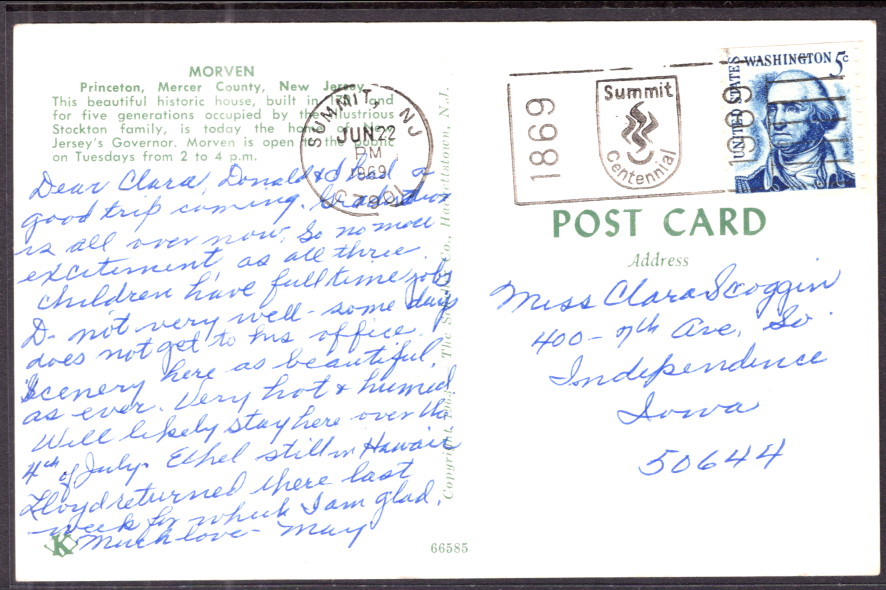 MORVEN
Princeton, Mercer County, New Jersey
This beautiful historic house, built in and
for five generations occupied by the illustrious
Stockton family, is today the home of New
Jersey's Governor. Morven is open to the public
on Tuesdays from 2 to 4 p.m.
Dear Clara, Donald & I had a
good trip coming. Graduation
is all over now. So no more
excitement as all three
children have full time jobs
D- not very well - some days
does not get to his office.
Scenery here as beautiful,
as ever. Very hot & humid
Will likely stay here over the
4th of July. Ethel still in Hawaii
Lloyd returned there last
week for which I am glad.
Much love - May
K
66585
SUMMIT, NJ
JUN 22
PM
1869
07901
1869
Summit
Centennial
1969
UNITED STATES
WASHINGTON 5c
POST CARD
Address
Miss Clara Scoggin
400 - 7th Ave, So.
Independence
Iowa
50644